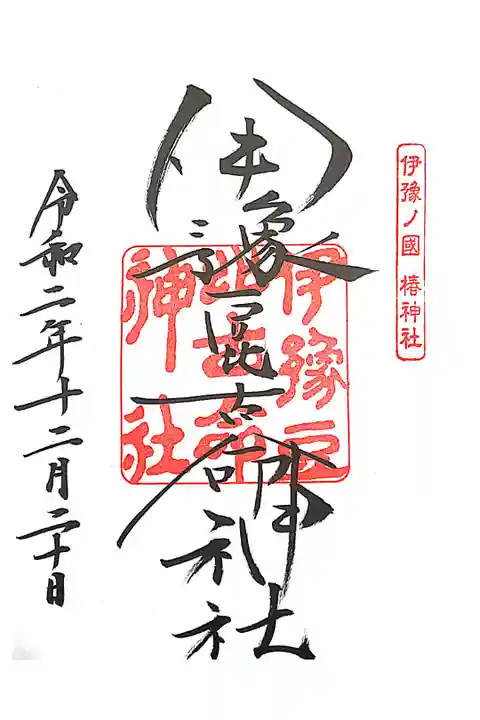 伊豫ノ國 椿神社
伊豫豆比古命神社
伊豫豆
比古命
神社
令和二年十二月二十日